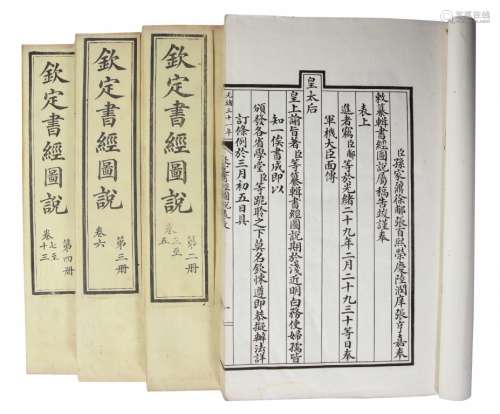 臣孫家鼐徐郙張百熙榮慶陸潤庠張亨嘉奉
敕纂輯書經圖說屬稿告竣謹奉
表上
進者竊臣郙等於光緒二十九年二月二十九三十等日奉
軍機大臣面傳
皇太后
皇上諭旨著臣等纂輯書經圖說期於淺近明白務使婦孺皆
知一俟書成即以
頒發各省學堂臣等跪聆之下莫名欽悚遵即恭擬辦法詳
訂條例於三月初五日具
光緒三十一年
欽定書經圖說
第二册
卷三至五
欽定書經圖說
第三册
卷六
欽定書經圖說
第四册
卷七至十三